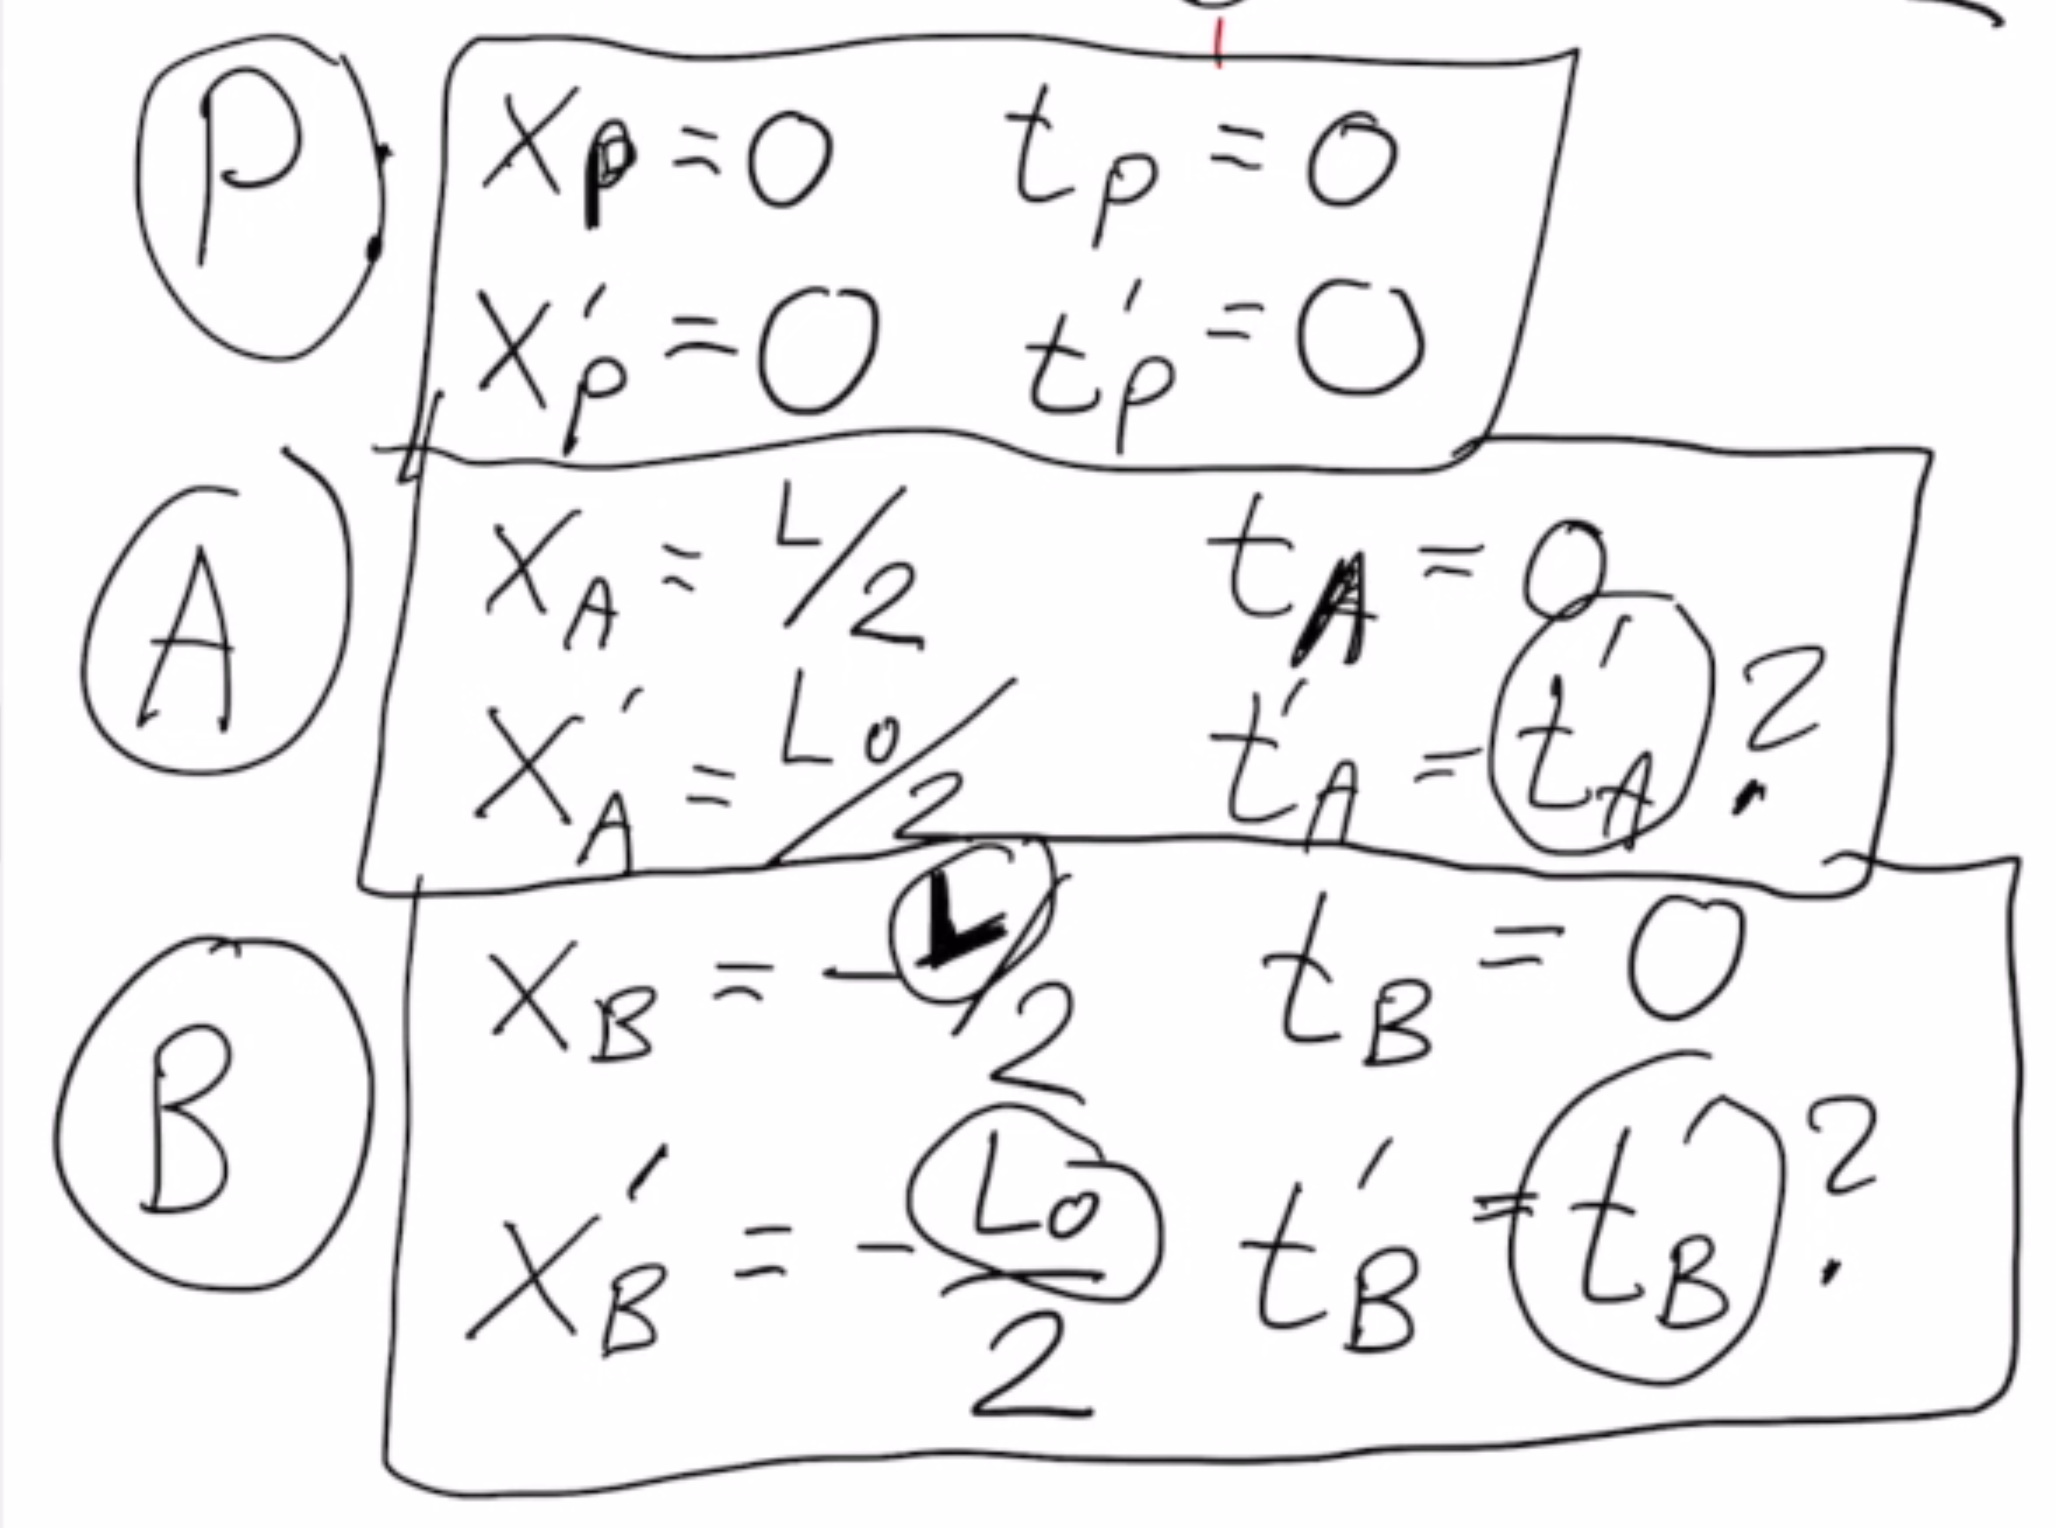 P
x_P = 0 t_P = 0
x'_P = 0 t'_P = 0
A
x_A = L/2 t_A = 0
x'_A = L₀/2 t'_A = t'_A ?
B
x_B = -L/2 t_B = 0
x'_B = -L₀/2 t'_B = t'_B ?